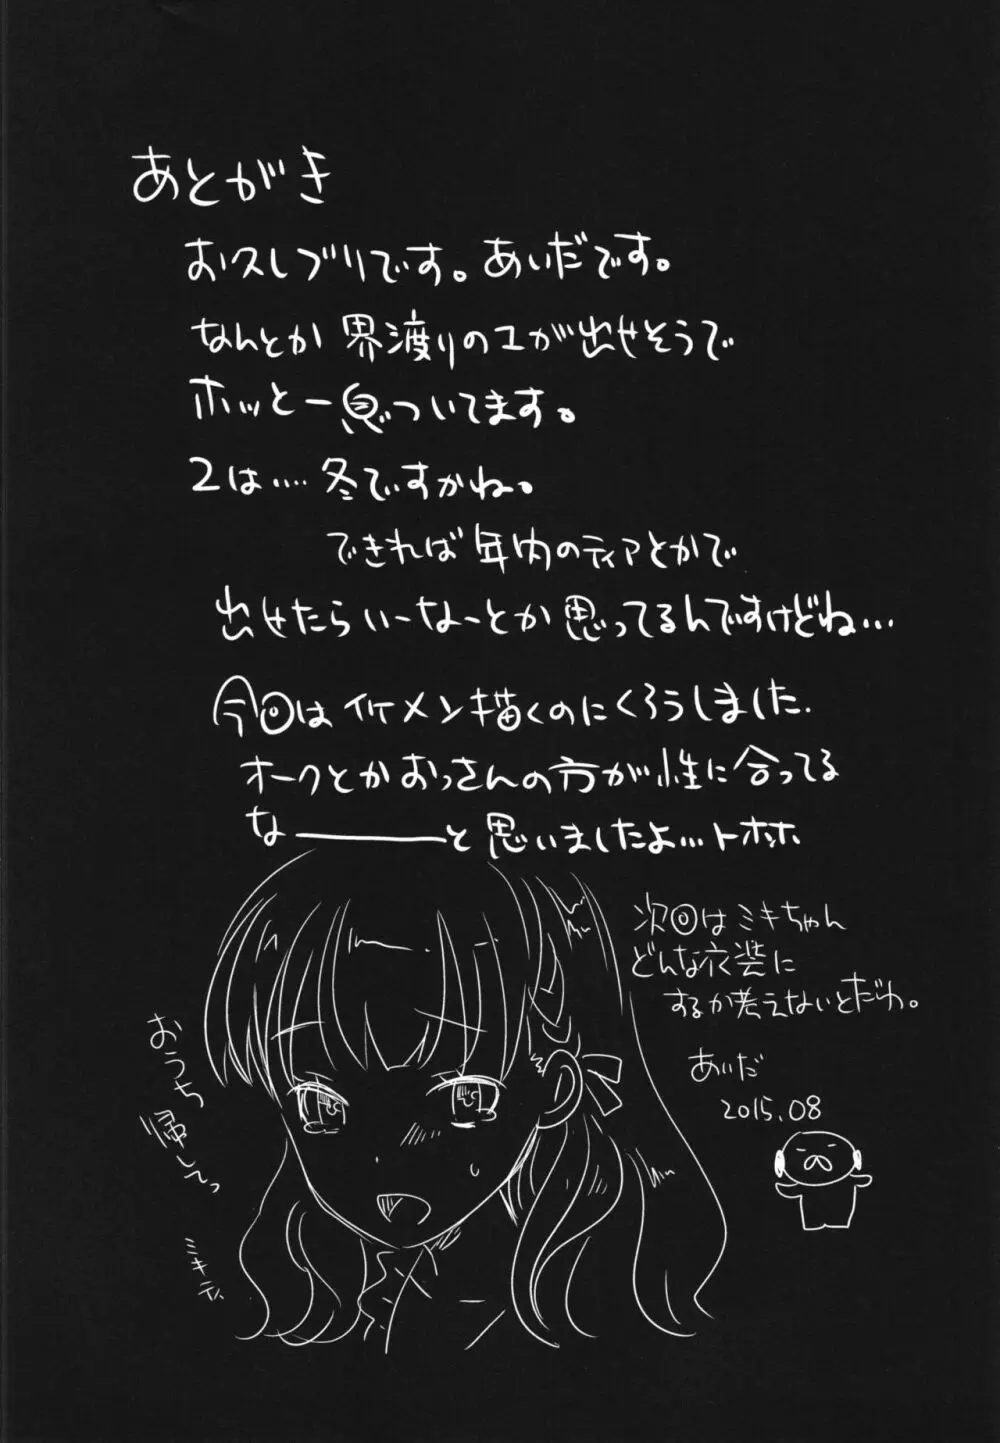 あとがき
お久しブリです。あいだです。
なんとか界渡りの1が出せそうで
ホッと一息ついてます。
2は‥‥冬ですかね。
できれば年内のティアとかで
出せたらいーなーとか思ってるんですけどね…
今回はイケメン描くのにくろうしました.
オークとかおっさんの方が性に合ってる
な―――と思いましたよ…トホホ
次回はミキちゃん
どんな衣装に
するか考えないとだわ。
あいだ
2015.08
おうち
帰してっ
ミキティ